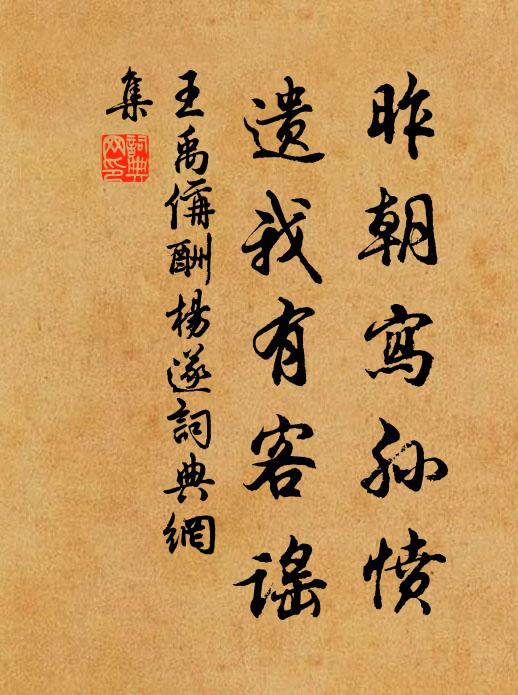 昨朝寫孤憤
遺我有客謠
王禹偁酬楊遂詞典網
集
詞典网印